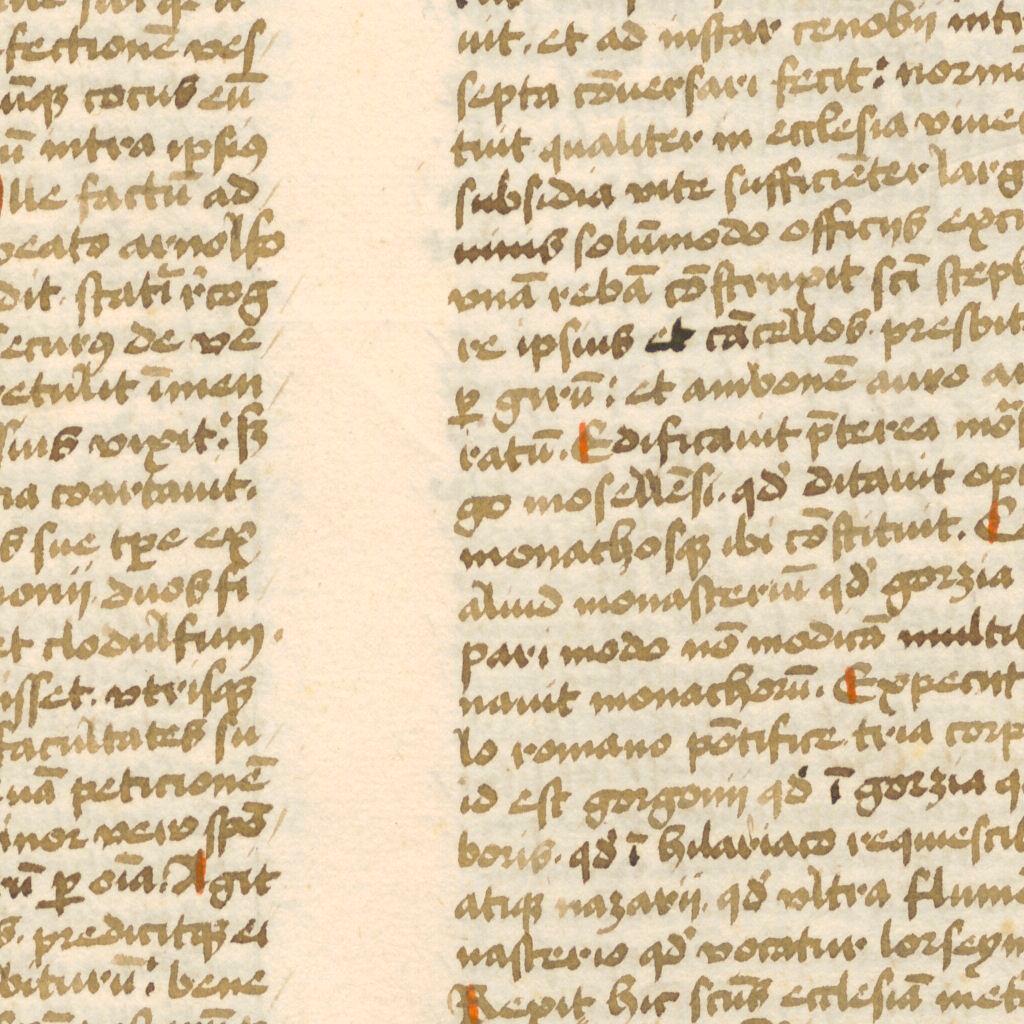 fectionē ves
ūqꝫ cocus eū
ū intra ipsiꝰ
lle factū ad
beato arnolfo
dit. statī rcog
ecurꝰ de ve
retulit īmen
sius vixit: sꝫ
ria coartauit.
s sue tpe ex
onij. duos fi
et clodulfum.
isset. vtrisqꝫ
facultates su
uā peticionē
inor vero spō
rū ꝑ oīa. Agit
s. predicitqꝫ ei
biturū: bene
uit. et ad instar cenobij intr
septa cōuersari fecit: normā
tuit qualiter in ecclesia viue
subsidia vite sufficiēter larg
uinis solūmodo officijs exc
vnā rebā cōstruxit scī steph
re ipsius et cācellos. presbit
ꝑ girū: et ambonē auro ar
ratū. Edificauit p̄terea mōs
go mosellēsi. qd̓ ditauit op
monachosqꝫ ibi cōstituit. C
aliud monasteriū qd̓ gorzia
pari modo nō modicā multit
nauit monachorū. Expeciit
lo romano pōtifice tria corp
id est gorgonij qd̓ ī gorzia q
boris. qd̓ ī hilariaco requiescit
atqꝫ nazarij. qd̓ vltra flumē
nasterio qd̓ vocatur lorseym
Rexit hic scūs ecclesiā met